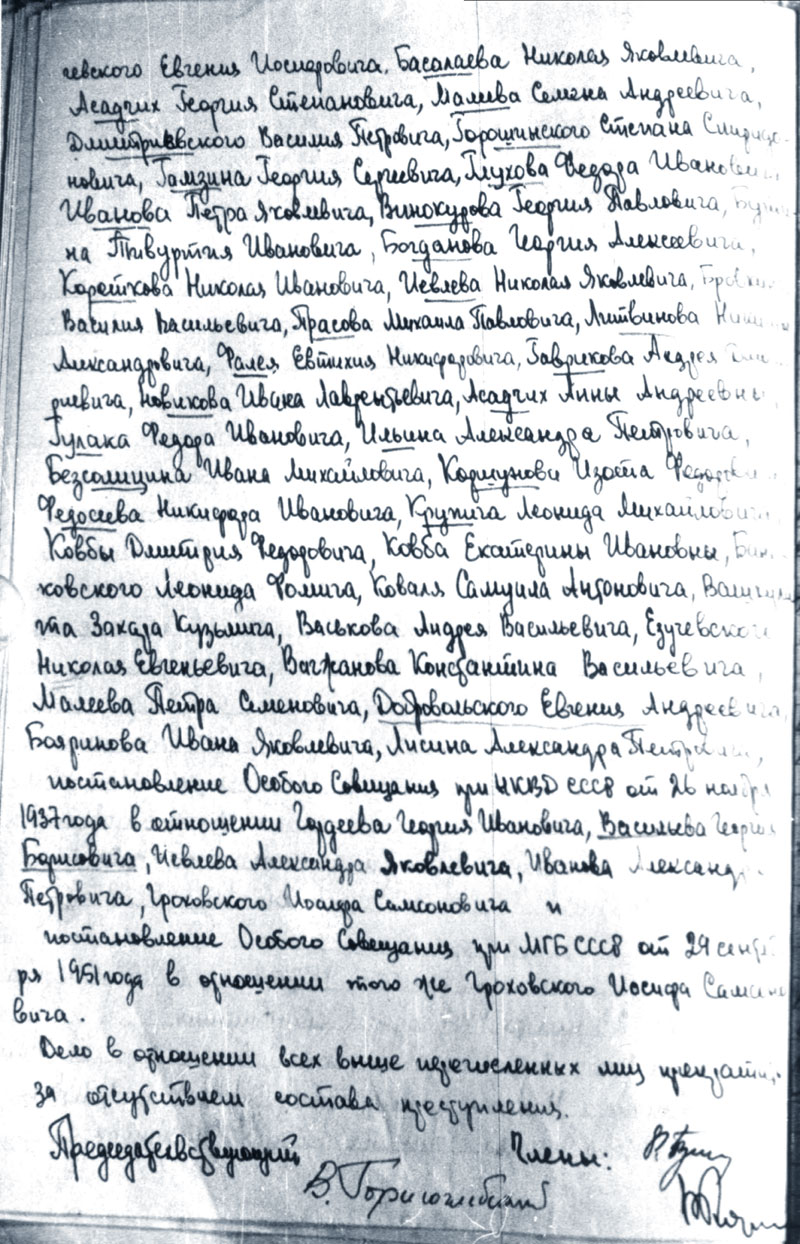 чевского Евгения Иосифовича, Басалаева Николая Яковлевича,
Асадчих Георгия Степановича, Малеева Семена Андреевича,
Дмитриевского Василия Петровича, Горошинского Степана
новича, Гамзина Георгия Сергеевича, Глухова Федора
Иванова Петра Яковлевича, Винокурова Георгия Павловича,
на Тивуртия Ивановича, Богданова Георгия Алексеевича,
Кораткова Николая Ивановича, Иевлева Николая Яковлевича,
Василия Васильевича, Прасова Михаила Павловича, Литвинова
Александровича, Фалея Евтихия Никифоровича, Гаврикова Андрея
риевича, Новикова Ивана Лаврентьевича, Асадчих Анны Андреевны,
Гулака Федора Ивановича, Ильина Александра Петровича,
Безсолицина Ивана Михайловича, Коршунова Изота
Федосеева Никифора Ивановича, Кружича Леонида Михайловича,
Ковбы Дмитрия Федоровича, Ковба Екатерины Ивановны,
ковского Леонида Фомича, Коваля Самуила Антоновича,
та Захара Кузьмича, Васькова Андрея Васильевича, Езучевского
Николая Евгеньевича, Вагжанова Константина Васильевича,
Малеева Петра Семеновича, Добровольского Евгения Андреевича,
Бояринова Ивана Яковлевича, Лисина Александра
постановление Особого Совещания при НКВД СССР от 26 ноября
1937 года в отношении Гордеева Георгия Ивановича, Васильева Георгия
Борисовича, Иевлева Александра Яковлевича, Иванова
Петровича, Гроховского Иосифа Самсоновича и
постановление Особого Совещания при МГБ СССР от 29
ря 1951 года в отношении того же Гроховского Иосифа
вича.
Дело в отношении всех выше перечисленных лиц
за отсутствием состава преступления.
Председательствующий Члены: